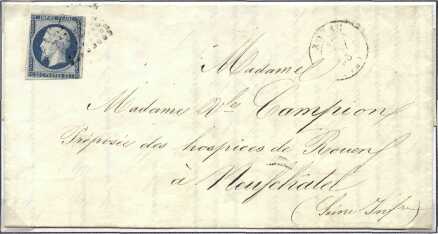 EMPIRE FRANC.
Madame
Madame Vve Campion
Préposée des hospices de Rouen
à Neufchatel
(Seine Infre)